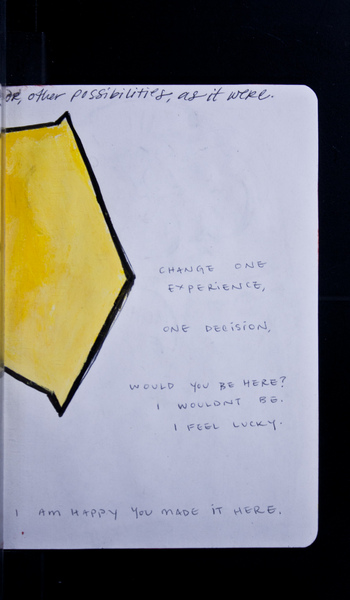 or, other possibilities, as it were.
CHANGE ONE
EXPERIENCE,
ONE DECISION,
WOULD YOU BE HERE?
I WOULDNT BE.
I FEEL LUCKY.
I AM HAPPY YOU MADE IT HERE.